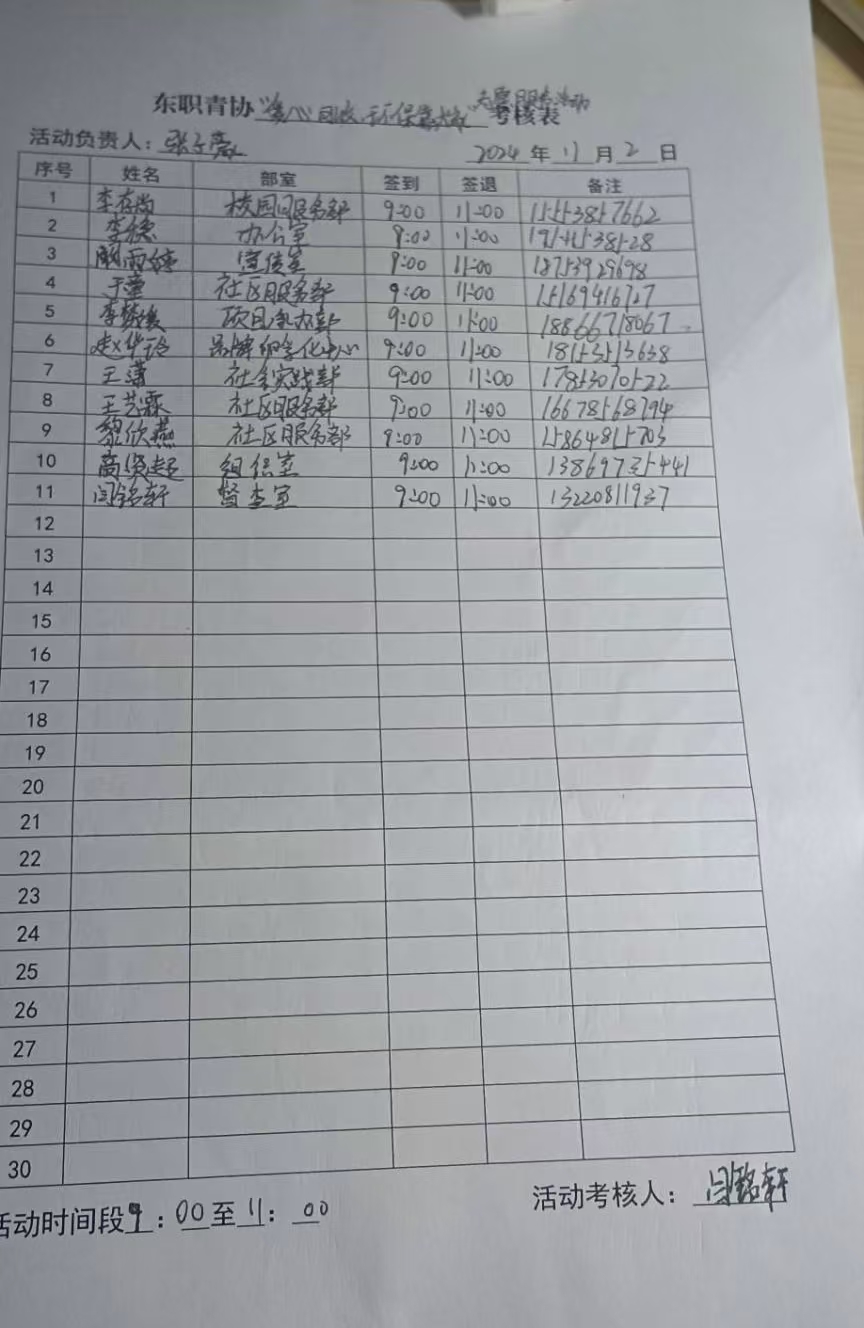 东职青协“爱心回收,环保靠大家”志愿服务活动考核表
活动负责人: 张子
2024 年 11 月 2 日
序号 姓名 部室 签到 签退 备注
1 李在尚 校园服务部 9:00 11:00 15553857662
2 李德 办公室 9:00 11:00
3 雨婷 宣传室 9:00 11:00 18753929698
4 于童 社区服务部 9:00 11:00 15169416727
5 李 项目 部 9:00 11:00 18866718067
6 赵华玲 品牌孵化中心 9:00 11:00 18153513638
7 王 社会实践部 9:00 11:00 17853070522
8 王艺霖 社区服务部 9:00 11:00 16678568794
9 黎欣燕 社区服务部 9:00 11:00 15864815703
10 高贤起 组织室 9:00 11:00 13869735441
11 闫铭轩 督查室 9:00 11:00 13220811937
12
13
14
15
16
17
18
19
20
21
22
23
24
25
26
27
28
29
30
活动时间段 9:00至11:00
活动考核人: 闫铭轩